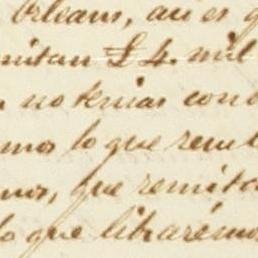 Orleans, así es q
mitan £ 4. mil
no tenias con
mos lo que rem
mos, que remita
lo que libraremos